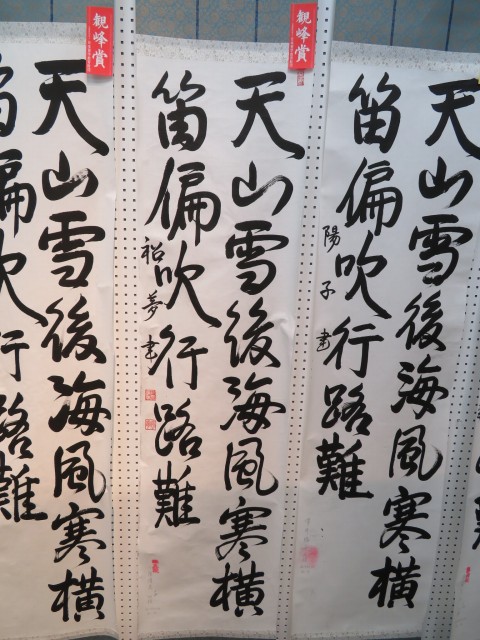 観峰賞
観峰賞
天山雪後海風寒横
笛偏吹行路難
陽子書
天山雪後海風寒横
笛偏吹行路難
夢書
天山雪後海風寒横
笛偏吹行路難